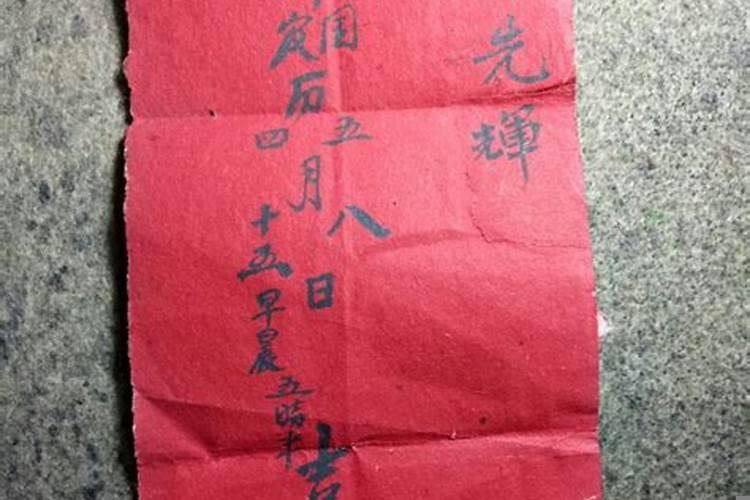 先輝
国 五 八
历 月 日
农 四 十五早晨五時半
吉